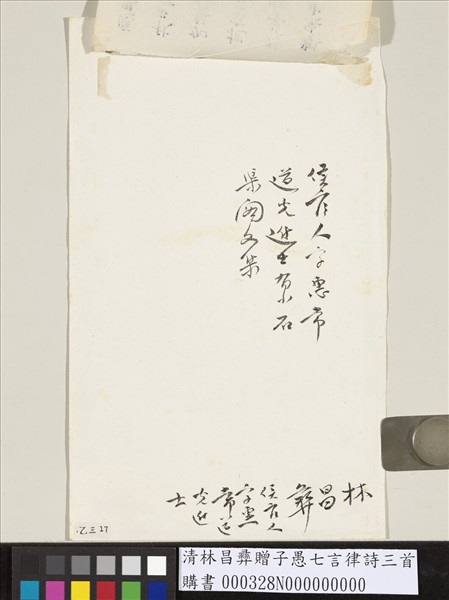 侯官人字惠常
道光進士有石
渠閣文集
林昌彝
侯官人
字惠
常道
光進
士
乙三27
清林昌彝贈子愚七言律詩三首
購書 000328N000000000